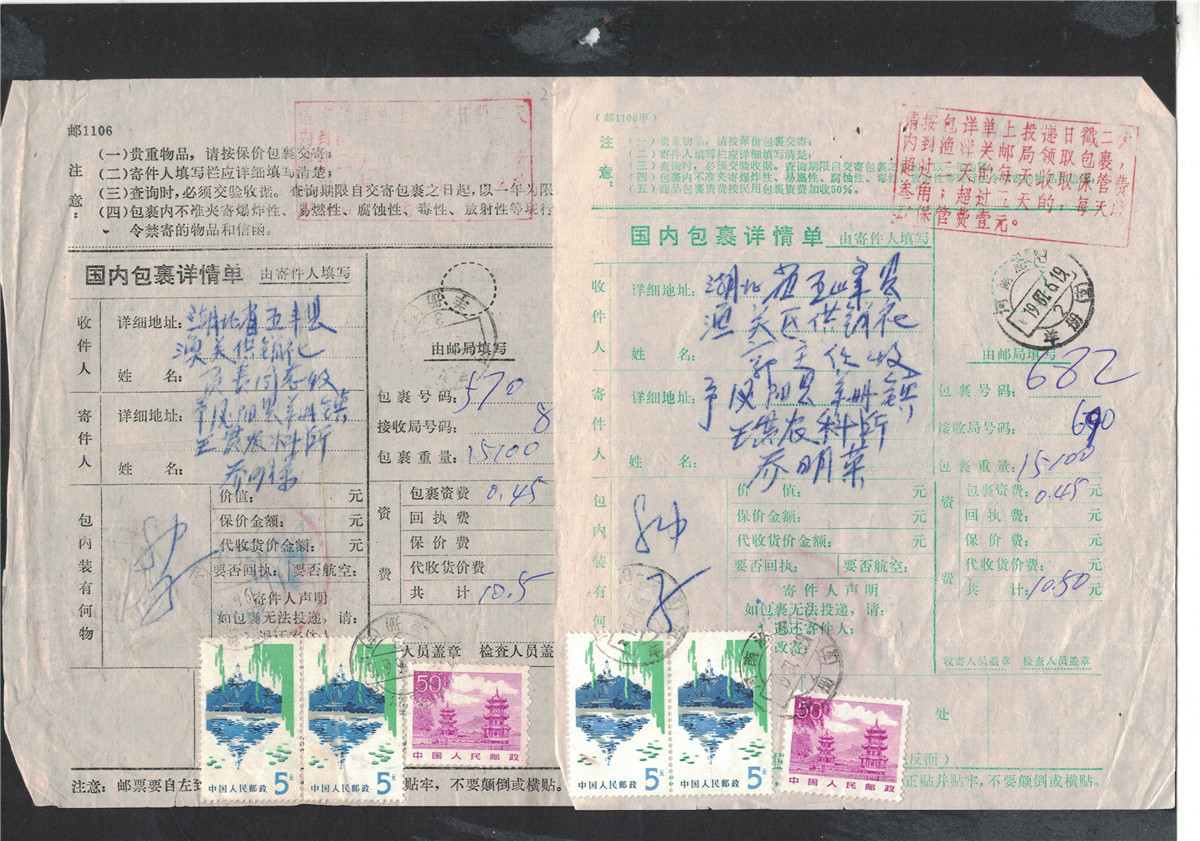 邮1106
注意:
(一)贵重物品,请按保价包裹交寄;
(二)寄件人填写栏应详细填写清楚;
(三)查询时,必须交验收据。查询期限自交寄包裹之日起,以一年为限
(四)包裹内不准夹寄爆炸性、易燃性、腐蚀性、毒性、放射性等现行
令禁寄的物品和信函。
国内包裹详情单 由寄件人填写
收件人
详细地址:湖北省五丰县
渔关供销社
姓 名:
寄件人
详细地址:
农科所
姓 名:
由邮局填写
包裹号码:570
接收局号码:8
包裹重量:15100
包内装有何物
价值: 元
保价金额: 元
代收货价金额: 元
要否回执: 要否航空:
寄件人声明
如包裹无法投递,请:
退还寄件人
资费
包裹资费 0.45
回执费
保价费
代收货价费
共 计 10.5
人员盖章 检查人员盖
50
中国人民邮政
5元
中国人民邮政
5元
中国人民邮政
注意:邮票要自左
牢,不要颠倒或横贴。
(邮1106甲)
注意:
(一)贵重物品,请按保价包裹交寄;
(二)寄件人填写栏应详细填写清楚;
(三)查询时,必须交验收据。查询期限自交寄包裹之
(四)包裹内不准夹寄爆炸性、易燃性、腐蚀性、毒性、
(五)商品包裹资费按民用包裹资费加收50%。
请按包详单上投递日戳二天
内到渔洋关邮局领取包裹,
超过
用;超过
保管费壹元。
国内包裹详情单 由寄件人填写
收件人
详细地址:湖北省五峰县
渔关区供销社
姓 名:郭主任收
寄件人
详细地址:
农科所
姓 名:乔明荣
1987.6.19
由邮局填写
包裹号码:682
接收局号码:690
包裹重量:15100
包内装有何物
价 值: 元
保价金额: 元
代收货价金额: 元
要否回执: 要否航空:
寄件人声明
如包裹无法投递,请:
1.退还寄件人;
改寄:
资费
包裹资费:0.45元
回执费: 元
保价费: 元
代收货价费: 元
共 计:10.50元
收寄人员盖章 检查人员盖章
处
反面)
5元
中国人民邮政
5元
中国人民邮政
50
中国人民邮政
正贴并贴牢,不要颠倒或横贴。